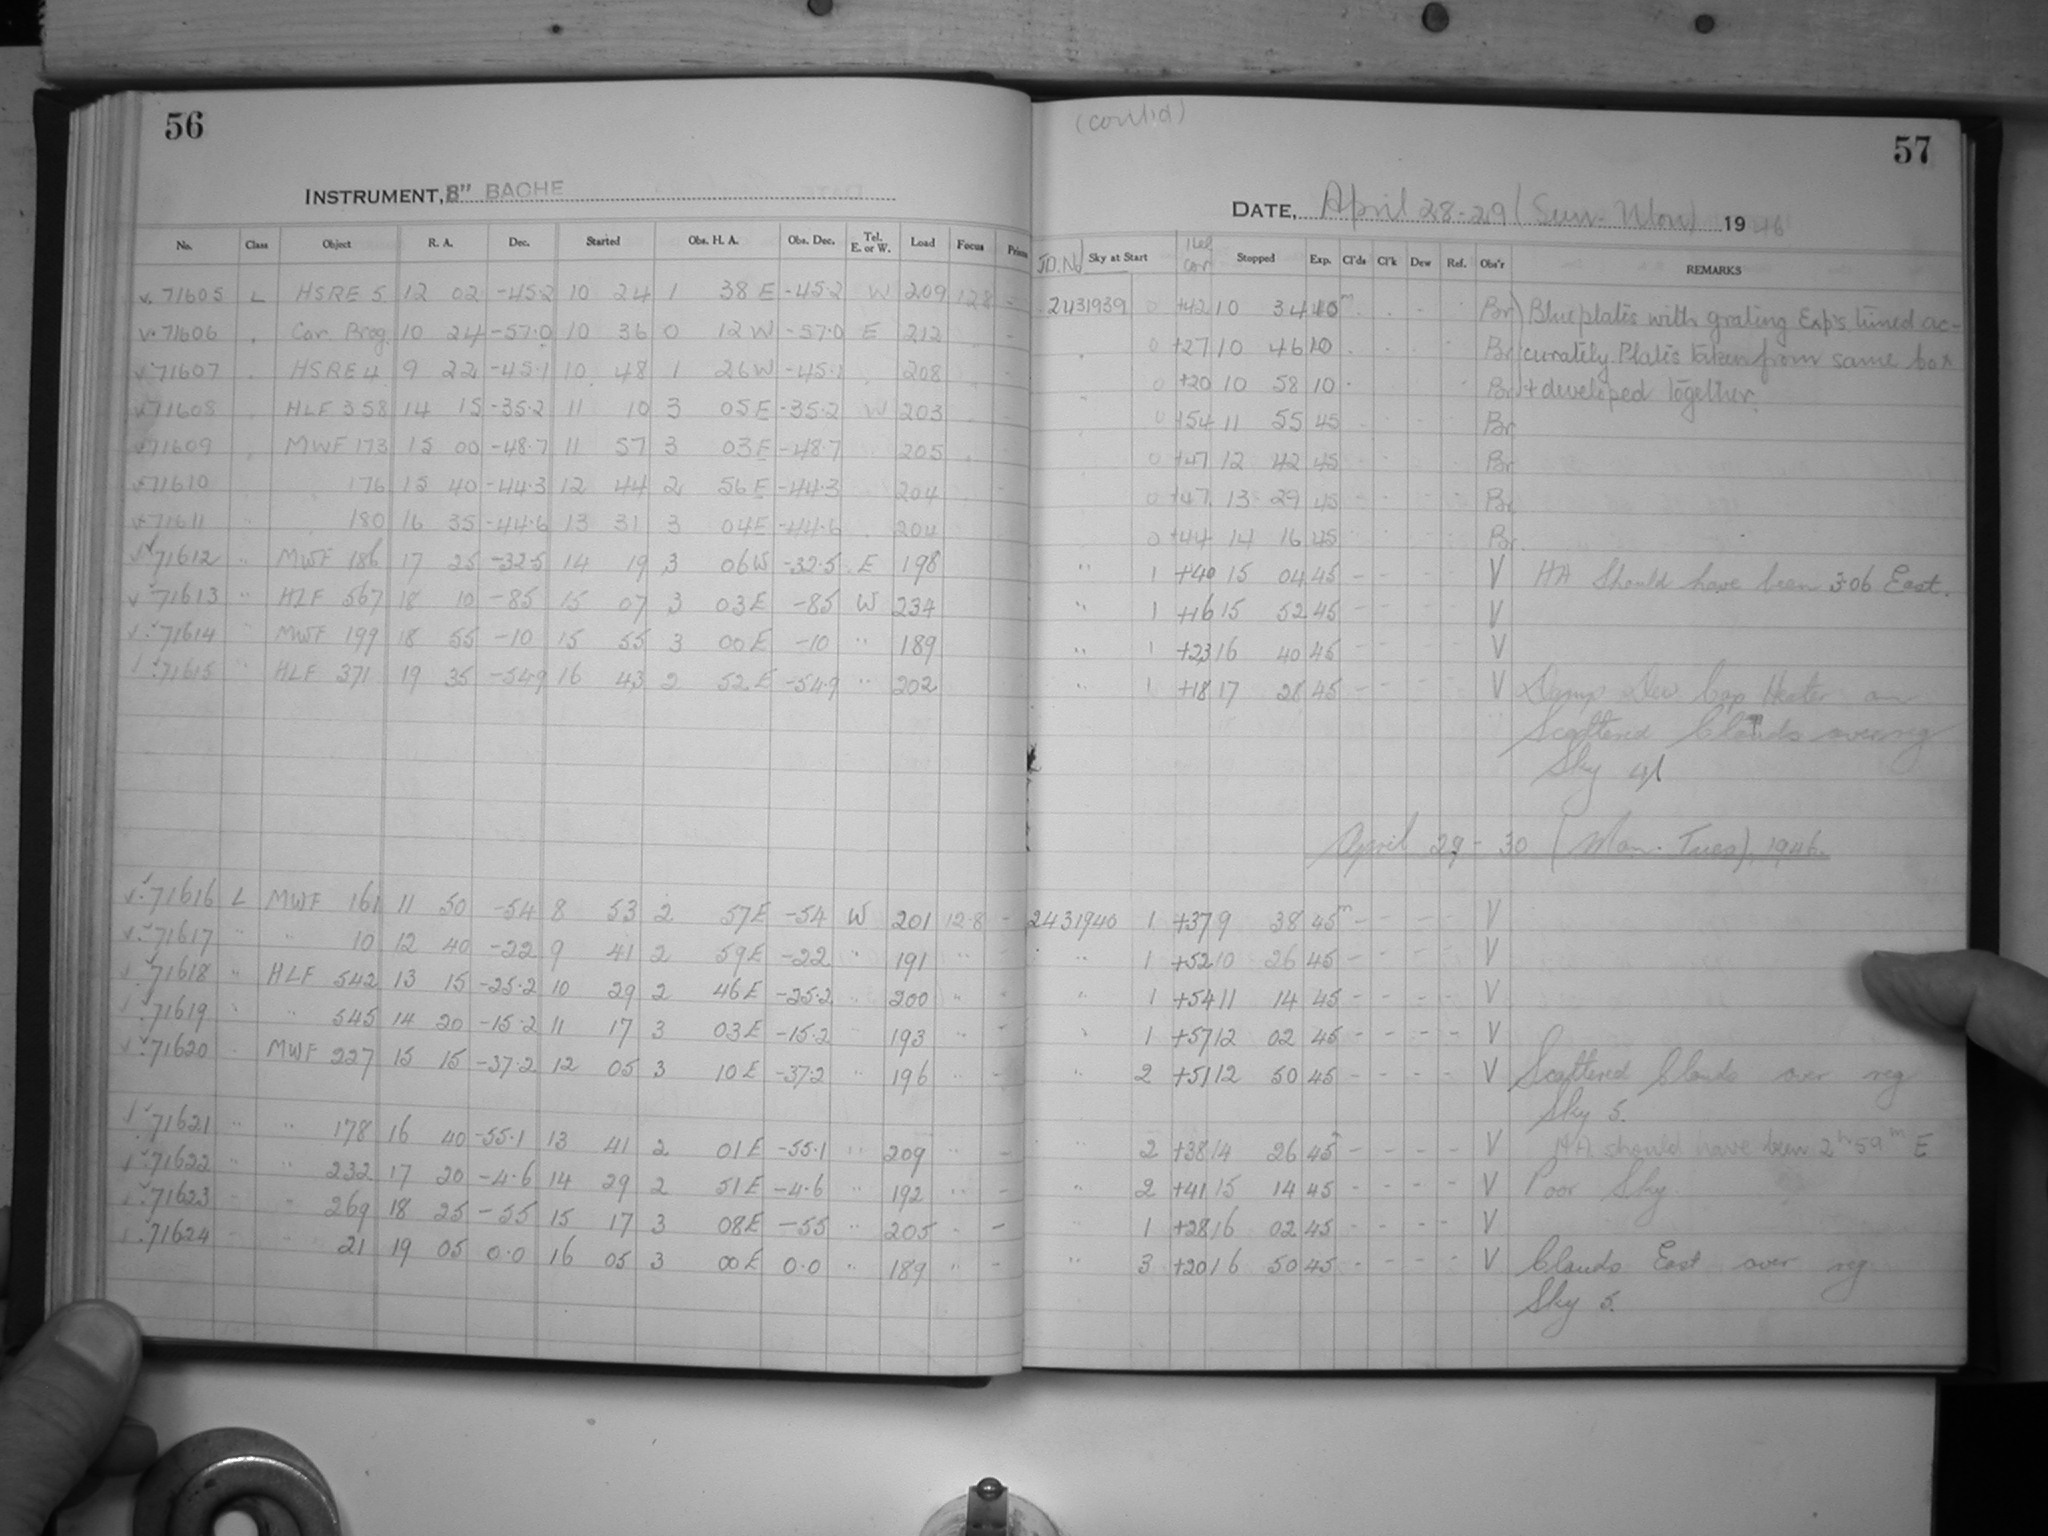 56
INSTRUMENT, 8" BACHE
No. Class Object R. A. Dec. Started Obs. H. A. Obs. Dec. Tel. E. or W. Load Focus
71605 L HSRE 5 12 02 -45.2 10 24 1 38 E -45.2 W 209 12.8 -
71606 Car. Prog. 10 24 -57.0 10 36 0 12 W -57.0 E 212
71607 HSRE 4 9 22 -45.1 10 48 1 26 W -45.1 208
71608 HLF 358 14 15 -35.2 11 10 3 05 E -35.2 W 203
71609 MWF 173 15 00 -48.7 11 57 3 03 E -48.7 205
71610 176 15 40 -44.3 12 44 2 56 E -44.3 204
71611 180 16 35 -44.6 13 31 3 04 E -44.6 204
71612 " MWF 186 17 25 -32.5 14 19 3 06 W -32.5 E 198
71613 " HLF 567 18 10 -85 15 07 3 03 E -85 W 234
71614 " MWF 199 18 55 -10 15 55 3 00 E -10 " 189
71615 " HLF 371 19 35 -54.9 16 43 2 52 E -54.9 " 202
71616 L MWF 161 11 50 -54 8 53 2 57 E -54 W 201 12.8 -
71617 " " 10 12 40 -22 9 41 2 59 E -22 " 191 " -
71618 " HLF 542 13 15 -25.2 10 29 2 46 E -25.2 " 200 " -
71619 " " 545 14 20 -15.2 11 17 3 03 E -15.2 " 193 " -
71620 " MWF 227 15 15 -37.2 12 05 3 10 E -37.2 " 196 " -
71621 " " 178 16 40 -55.1 13 41 2 01 E -55.1 " 209 " -
71622 " " 232 17 20 -4.6 14 29 2 51 E -4.6 " 192 " -
71623 " " 269 18 25 -55 15 17 3 08 E -55 " 205 " -
71624 21 19 05 0.0 16 05 3 00 E 0.0 " 189 " -
(cont'd)
57
DATE, April 28-29 (Sun-Mon) 1946
J.D. No Sky at Start Stopped Exp. Cl'ds Cl'k Dew Ref. Obs'r REMARKS
2431939 0 +42 10 34 10m Br Blue plates with grating Exp's timed ac-
0 +27 10 46 10 Br curately Plates taken from same box
0 +20 10 58 10 Br + developed together.
0 +54 11 55 45 Br
0 +47 12 42 45 Br
0 +47 13 29 45 Br
0 +44 14 16 45 Br
" 1 +40 15 04 45 - - - - V HA Should have been 3.06 East.
" 1 +16 15 52 45 - - - - V
" 1 +23 16 40 45 - - - - V
" 1 +18 17 28 45 - - - - V Damp Dew Cap Heater on
Scattered Clouds over reg
Sky 4
April 29-30 (Mon-Tues), 1946
2431940 1 +37 9 38 45m - - - - V
" 1 +52 10 26 45 - - - - V
" 1 +54 11 14 45 - - - - V
" 1 +57 12 02 45 - - - - V
" 2 +51 12 50 45 - - - - V Scattered Clouds over reg
Sky 5.
" 2 +38 14 26 45 - - - - V HA should have been 2h 59m E
" 2 +41 15 14 45 - - - - V Poor Sky.
" 1 +28 16 02 45 - - - - V
" 3 +20 16 50 45 - - - - V Clouds East over reg
Sky 5.